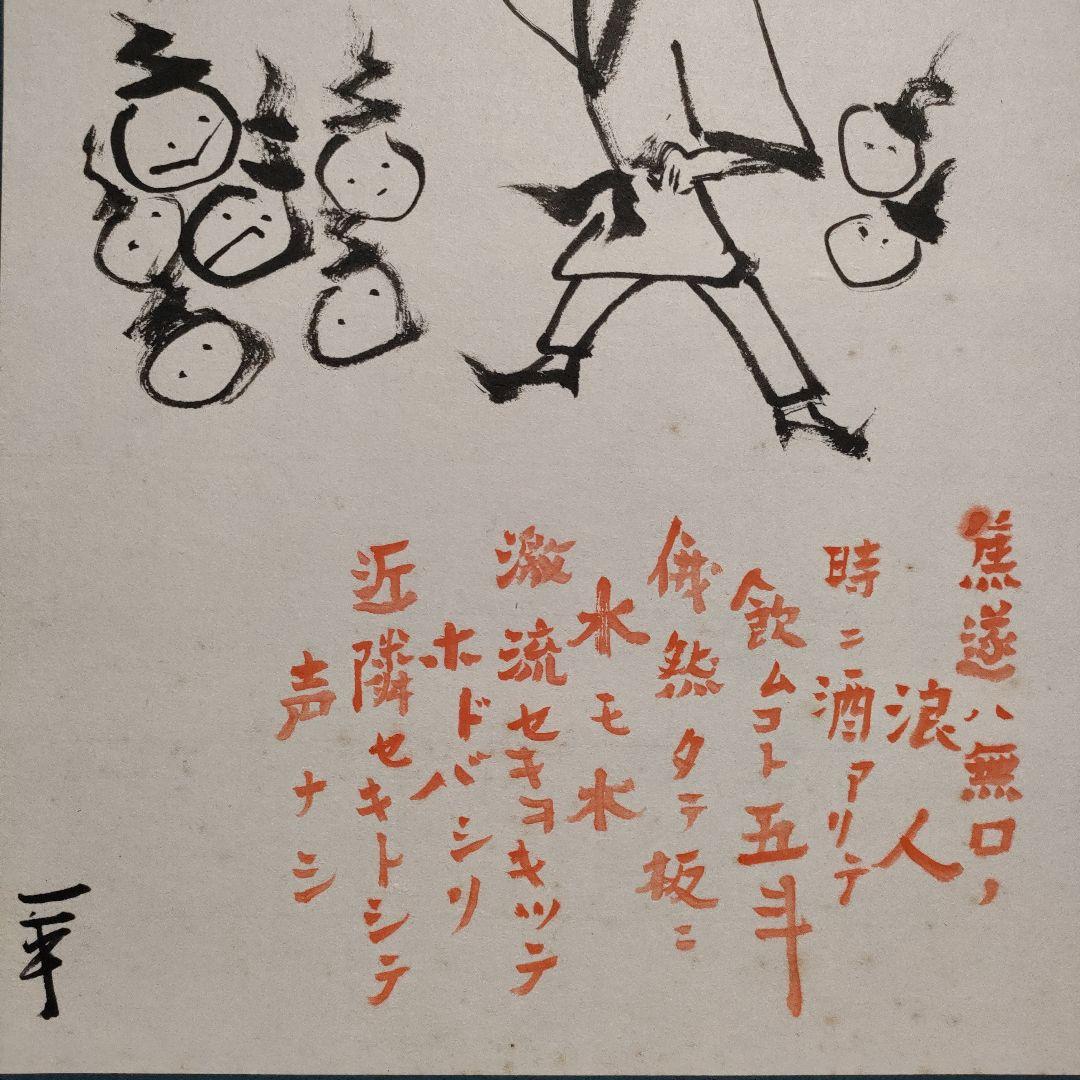 焦遂ハ無口ノ
浪人
時ニ酒アリテ
飲ムコト五斗
俄然タテ板ニ
水モ水
激流セキヨキッテ
ホドバシリ
近隣セキトシテ
声ナシ
一平